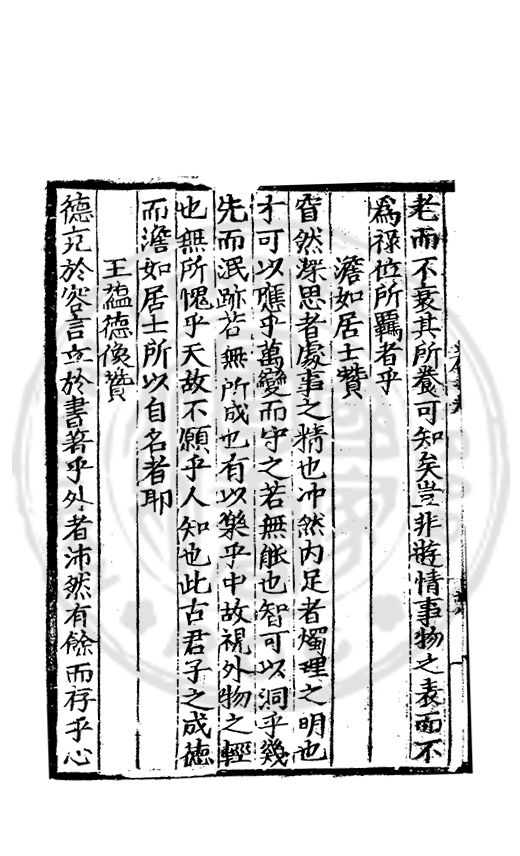 老而不衰其所養可知矣豈非遊情事物之表而不
為祿位所羈者乎
澹如居士贊
窅然深思者處事之精也冲然内足者燭理之明也
才可以應乎萬變而守之若無能也智可以洞乎幾
先而泯跡若無所成也有以樂乎中故視外物之輕
也無所愧乎天故不願乎人知也此古君子之成德
而澹如居士所以自名者耶
王蘊德像贊
德充於容言立於書著乎外者沛然有餘而存乎心